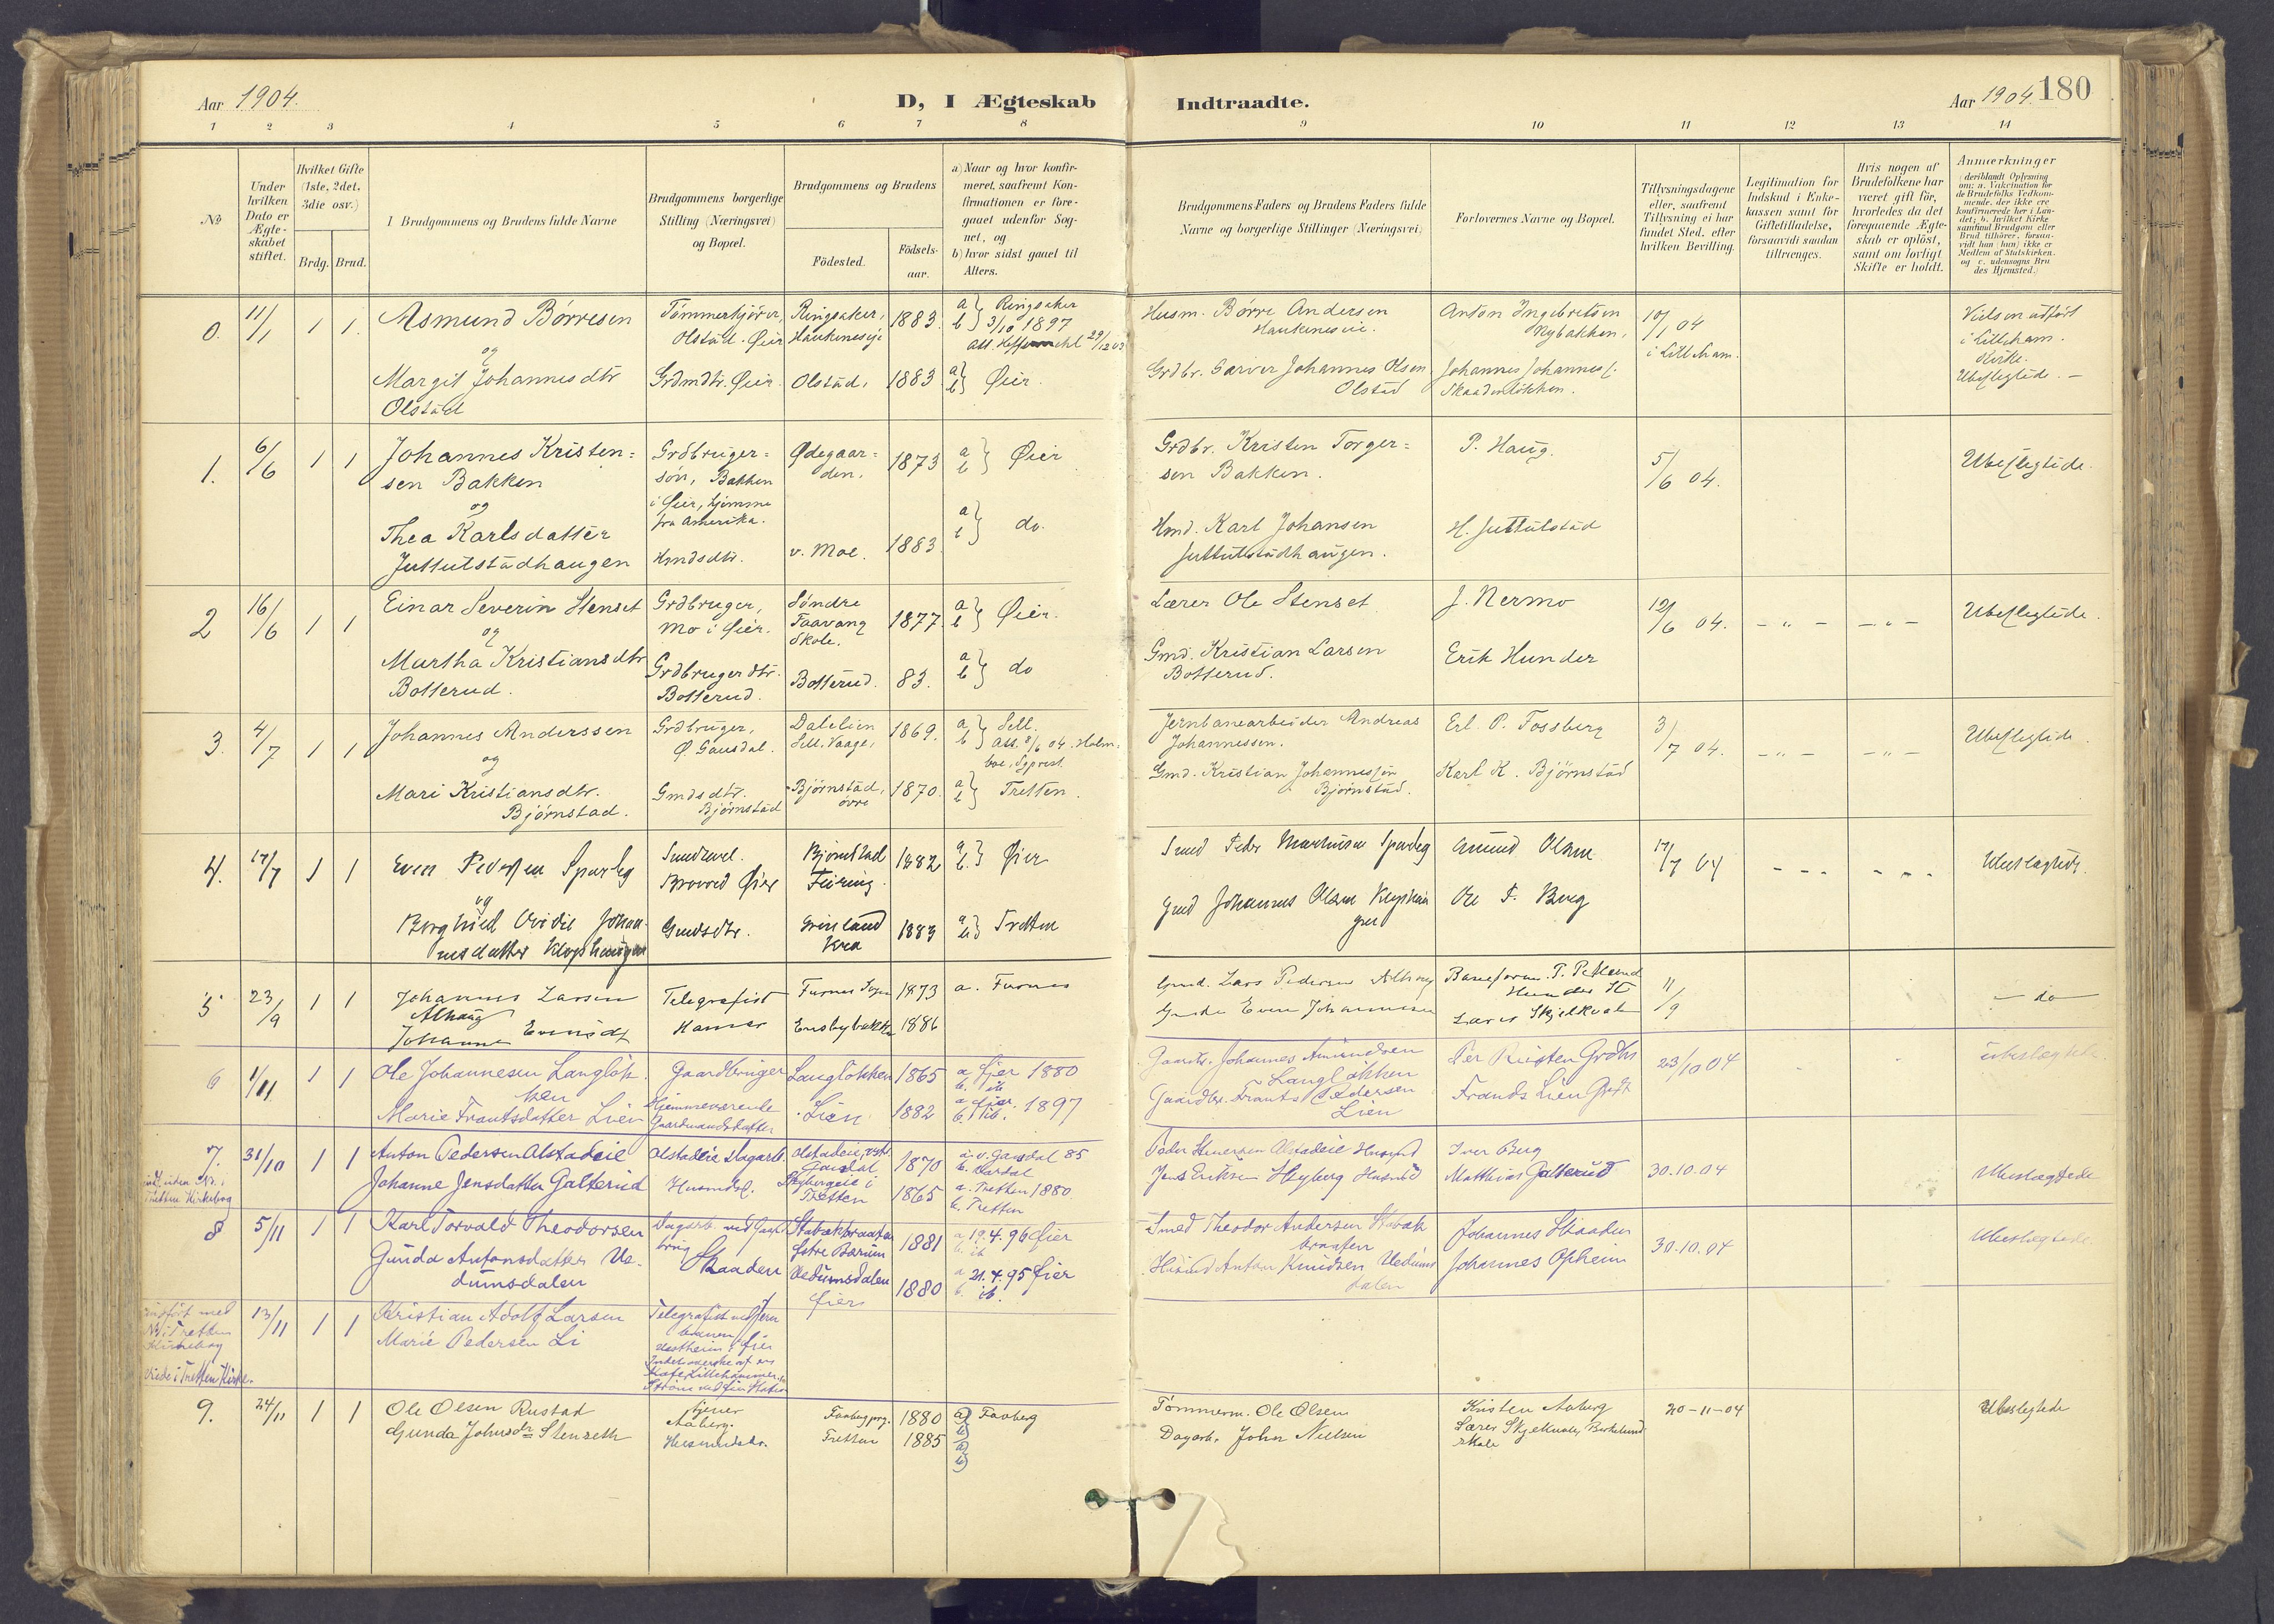 Aar 1904.
D, I Ægteskab Indtraadte.
Aar 1904. 180
1 2 3 4 5 6 7 8 9 10 11 12 13 14
No
Under hvilken Dato er Ægteskabet stiftet.
Hvilket Gifte (1ste, 2det, 3die osv.)
Brdg. Brud.
I Brudgommens og Brudens fulde Navne
Brudgommens borgerlige Stilling (Næringsvei) og Bopæl.
Brudgommens og Brudens
Födested.
Födselsaar.
a) Naar og hvor konfirmeret, saafremt Konfirmationen er foregaaet udenfor Sognet, og
b) hvor sidst gaaet til Alters.
Brudgommens Faders og Brudens Faders fulde Navne og borgerlige Stillinger (Næringsvei)
Forlovernes Navne og Bopæl.
Tillysningsdagene eller, saafremt Tillysning ei har fundet Sted, efter hvilken Bevilling.
Legitimation for Indskud i Enkekassen samt for Giftetilladelse, forsaavidt saadan tiltrænges.
Hvis nogen af Brudefolkene har været gift för, hvorledes da det foregaaende Ægteskab er oplöst, samt om lovligt Skifte er holdt.
Anmærkninger
(deriblandt Oplysning om: a. Vakcination for de Brudefolks Vedkommende, der ikke ere konfirmerede her i Landet; b. hvilket Kirkesamfund Brudgom eller Brud tilhörer, forsaavidt han (hun) ikke er Medlem af Statskirken, og c. udensogns Brudes Hjemsted.)
0. 11/1 1 1. Asmund Börresen Tömmerkjörer, Olstad. Øier Ringsaker, Haukeneseje 1883. a b} Ringsaker 3/10 1897 Husm. Börre Andersen Haukeneseie. Anton Ingebretsen Nybakken, 10/1 04 i Lilleham. Vielsen udført i Lilleham. Kirke. Ubeslegtede. —
og
Margit Johannesdtr Olstad Grdmdtr. Øier Olstad, 1883 a b} Øier. Grdbr. Garver Johannes Olsen Olstad Johannes Johannes. Skaadenlökken.
1. 6/6 1 1 Johannes Kristensen Bakken Grdbrugersön, Bakken i Øier, hjemme fra Amerika. Ødegaarden. 1873 a b} Øier Grdbr. Kristen Torgersen Bakken. P. Haug. 5/6 04. Ubeslegtede.
og
Thea Karlsdatter Juttulstadhaugen Hmdsdtr. v. Moe. 1883. a b} do. Hmd. Karl Johansen Juttulstadhaugen. H. Juttulstad
2 16/6 1 1 Einar Severin Stenset Grdbruger, Mo i Øier. Söndre Faavang Skole. 1877 a b} Øier. Lærer Ole Stenset J. Nermo 12/6 04. - " - - " - Ubeslegtede.
og
Martha Kristiansdtr Botterud. Grdbrugerdtr. Botterud. Botterud. 83. a b} do Gmd. Kristian Larsen Botterud. Erik Hunder
3. 4/7 1 1 Johannes Anderssen Grdbruger, Ø. Gausdal. Dalelien Sell. Vaage, 1869. a b} Sell. Att. 8/6 04. Holmboe, Sgprest. Jernbanearbeider Andreas Johannessen. Erl. P. Fossberg 3/7 04. - " - - " - Ubeslegtede.
og
Mari Kristiansdtr. Björnstad. Gmdsdtr. Björnstad Björnstad, övre 1870. a b} Tretten. Gmd. Kristian Johannessen Björnstad. Karl K. Björnstad
4. 17/7 1 1 Even Pedersen Sparby Björnstad Feiring. 1882 a b.} Øier Amund Olsen 17/7 04 - - - - - - Ubeslegtede.
og
Borghild Johannesdatter Klophaugen Gmdsdtr. 1883 a b} Tretten Gmd Johannes Olsen Ole F. Berg
5 23/9 1 1 Johannes Larsen Alhaug Telegrafist Hamar Furnes Sogn 1873 a. Furnes Gmd. Lars Pedersen Alhaug Baneform. P. Hunder St 11/9 — do —
Johanne Evensdt Ensbybakken 1886 Even Johannessen Lærer Skjelkvale
6 1/11 1 1 Ole Johannesen Langlökken Gaardbruger Langlökken 1865 a Øier 1880 b. ib Gaardbr. Johannes Amundsen Langlökken Per Rusten Grdbr 23/10 04 ubeslægtede
Marie Frantsdatter Lien Hjemmeværende Gaardmandsdatter Lien 1882 a Øier. 1897 b. ib. Gaardbr. Frants Pedersen Lien Frands Lien Grdb
7. 31/10 1 1 Anton Pedersen Olstadeie Olstadeie Dagarb. Olstadeie, vstr. Gausdal 1870 a. v. Gausdal 85 Peder Olstadeie Husmd Iver Berg 30.10.04 Ubeslægtede
Tretten Kirkebog
Johanne Jensdatter Galterud Husmdsd. Skybergeie i Tretten 1865 a. Tretten 1880 b. Tretten Jens Eriksen Skyberg Husmd Matthias Galterud
8 5/11 1 1 Karl Torvald Theodorsen Dagarb. ved Gaardbrug Skaaden Stabækbraaten Østre Bærum 1881 a 19.4.96 Øier b. ib Smed Theodor Andersen Stabækbraaten Johannes Skaaden 30.10.04 Ubeslægtede
Gunda Antonsdatter Uedumsdalen Uedumsdalen Øier 1880 a 21.4.95 Øier b. ib. Husmd Anton Knudsen Uedumsdalen Johannes Opheim
indfört med No i Tretten Kirkebog
Viede i Tretten Kirke.
13/11 1 1 Kristian Adolf Larsen Telegrafist ved Jernbanen
Marie Pedersen Li
9. 24/11 1 1 Ole Olsen Rustad tjener Aaberg. Faabergprg. 1880 a) b) Faaberg Tömmerm. Ole Olsen Kristen Aaberg 20-11-04 Ubeslegtede
Gunda Johnsdtr Stenseth Husmdsdr. Tretten 1885 a) b) Dagarb. John Nielsen Lærer Skjelkvale, Birkelund Skole